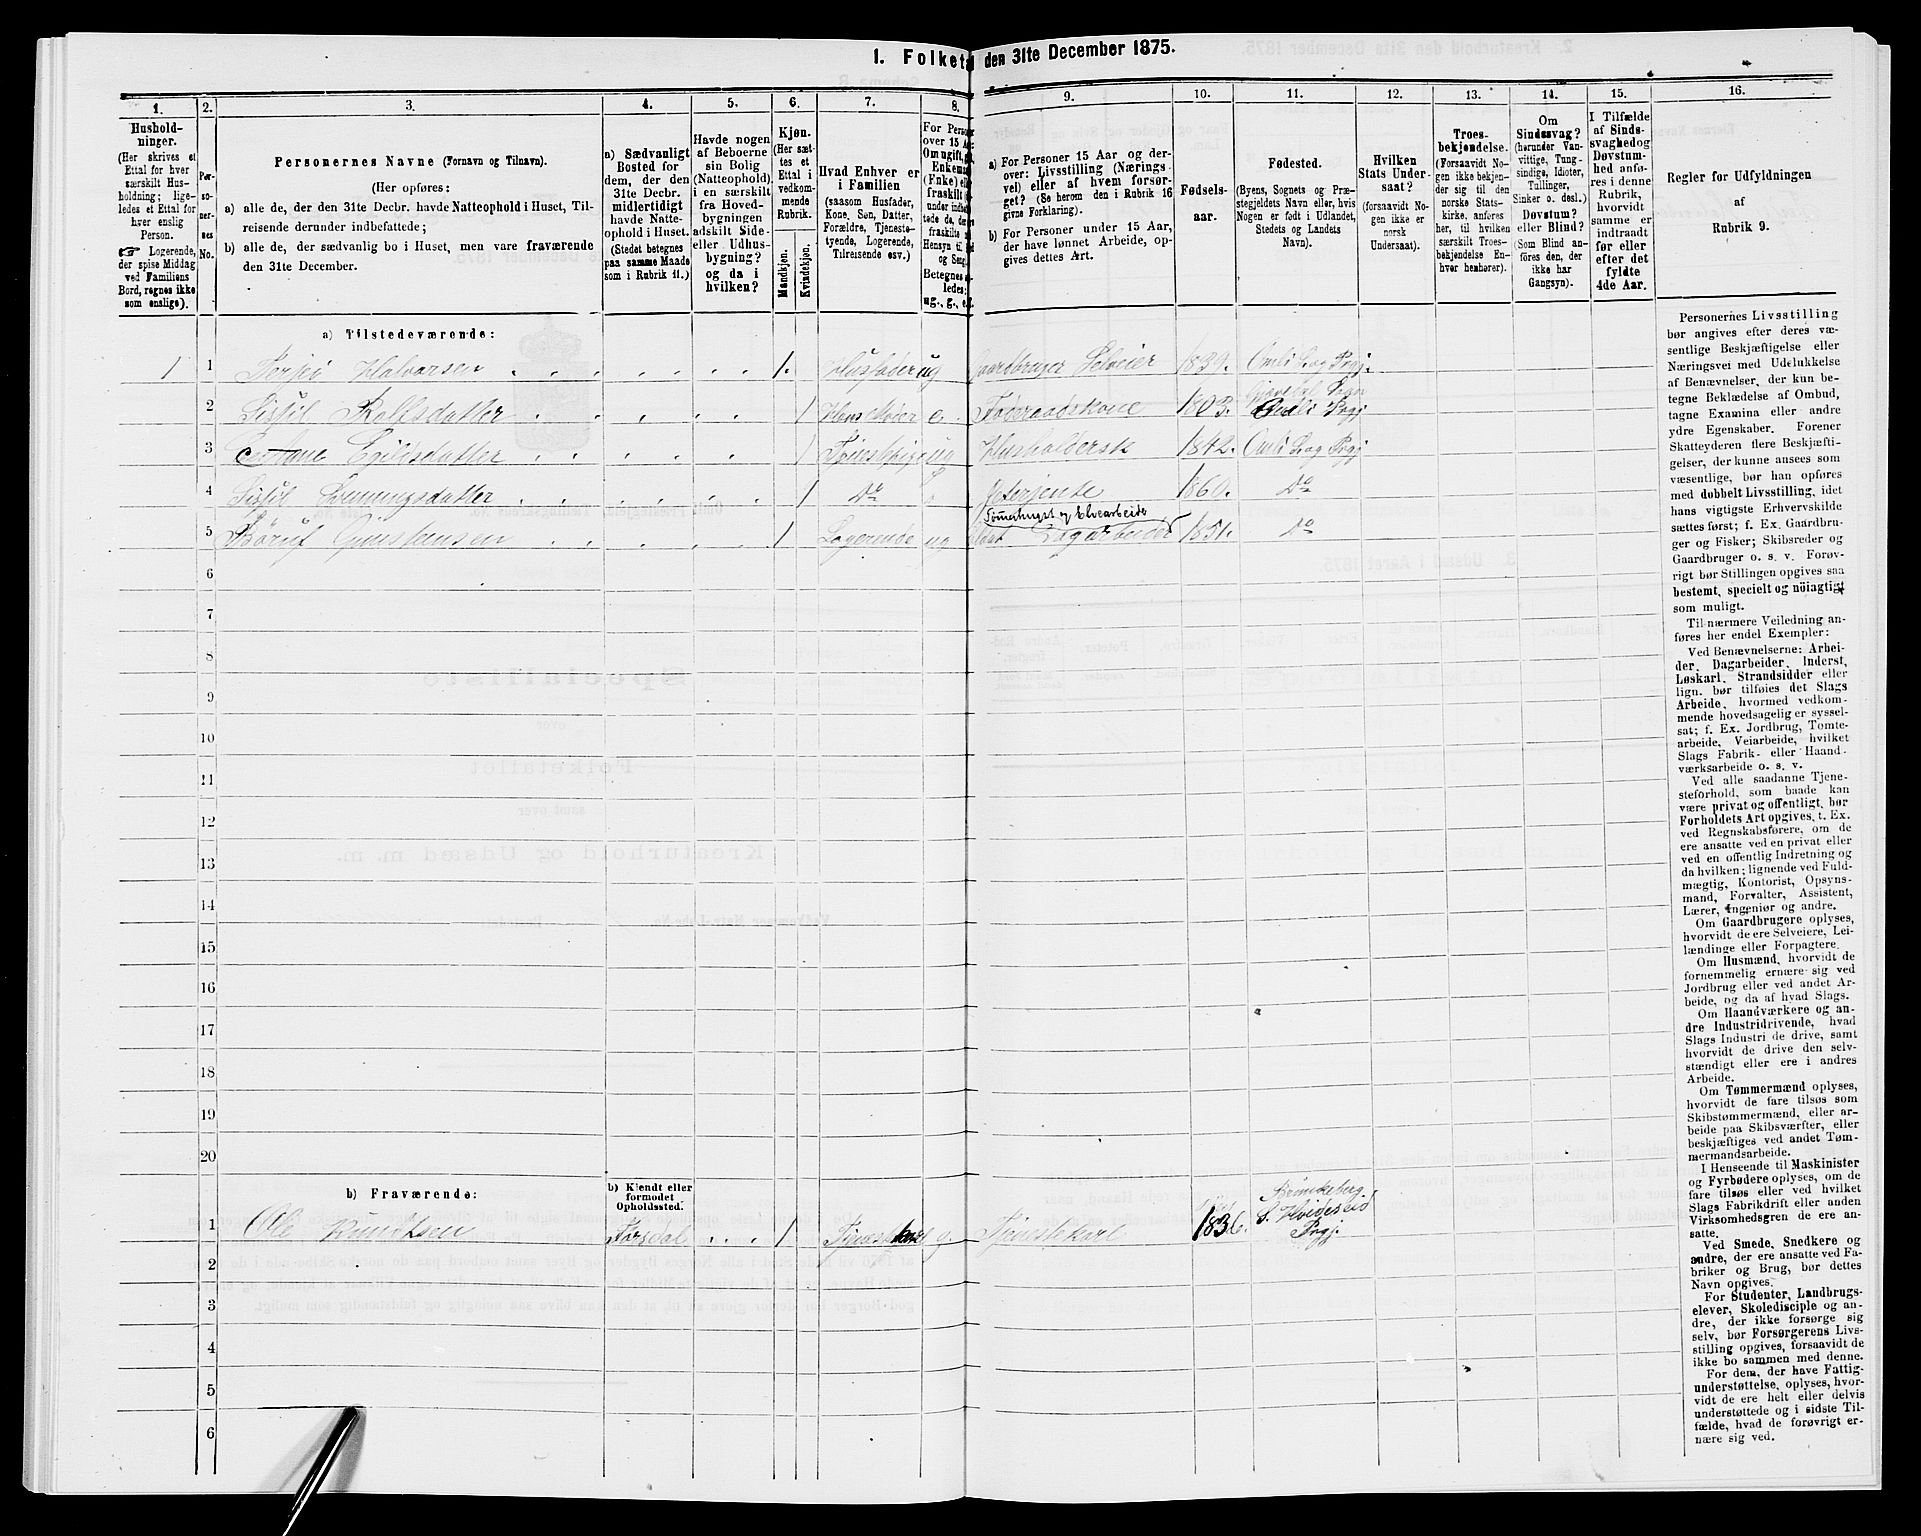 1. Folketal den 31te December 1875.
1.
Hushold-
ninger.
(Her skrives et
Ettal for hver
særskilt Hus-
holdning; lige-
ledes et Ettal for
hver enslig
Person.
Logerende,
der spise Middag
ved Familiens
Bord, regnes ikke
som enslige).
2.
Per-
so-
ner-
nes
No.
3.
Personernes Navne (Fornavn og Tilnavn).
(Her opføres:
a) alle de, der den 31te Decbr. havde Natteophold i Huset, Til-
reisende derunder indbefattede;
b) alle de, der sædvanlig bo i Huset, men vare fraværende
den 31te December.
4.
a) Sædvanligt
Bosted for
dem, der den
31te Decbr.
midlertidigt
havde Natte-
ophold i Huset.
(Stedet betegnes
paa samme Maade
som i Rubrik 11.)
5.
Havde nogen
af Beboerne
sin Bolig
(Natteophold)
i en særskilt
fra Hoved-
bygningen
adskilt Side-
eller Udhus-
bygning?
og da i
hvilken?
6.
Kjøn.
(Her sæt-
tes et
Ettal i
vedkom-
mende
Rubrik.
Mandkjøn.
Kvindekjøn.
7.
Hvad Enhver er
i Familien
(saasom Husfader,
Kone, Søn, Datter,
Forældre, Tjeneste-
tyende, Logerende,
Tilreisende osv.).
8.
For Perso
over 15 A
Om ugift,
Enkem
(Enke) el
fraskilt
9.
a) For Personer 15 Aar og der-
over: Livsstilling (Nærings-
vei) eller af hvem forsør-
get? (Se herom den i Rubrik 16
givne Forklaring).
b) For Personer under 15 Aar,
der have lønnet Arbeide, op-
gives dettes Art.
10.
Fødsels-
aar.
11.
Fødested.
(Byens, Sognets og Præ-
stegjeldets Navn eller, hvis
Nogen er født i Udlandet,
Stedets og Landets
Navn).
12.
Hvilken
Stats Under-
saat?
(forsaavidt No-
gen ikke er
norsk
Undersaat).
13.
Troes-
bekjendelse.
(Forsaavidt No-
gen ikke bekjen-
der sig til den
norske Stats-
kirke, anføres
her, til hvilken
særskilt Troes-
bekjendelse En-
hver henhører).
14.
Om
Sindssvag?
(herunder Van-
vittige, Tung-
sindige, Idioter,
Tullinger,
Sinker o. desl.)
Døvstum?
eller Blind?
(Som Blind an-
føres den, der
ikke har
Gangsyn).
15.
I Tilfælde
af Sinds-
svaghed og
Døvstum-
hed anfø-
res i denne
Rubrik,
hvorvidt
samme er
indtraadt
før eller
efter det
fyldte
4de Aar.
16.
Regler for Udfyldningen
af
Rubrik 9.
a) Tilstedeværende:
1 1 Terjei Halvorsen 1. Husfader ug Gaardbruger Selveier 1839. Omli Sog Prgj.
2 Sissil Rollefsdatter 1 Hans Moder e. Føderaadskone 1803. Gjøvedal Sogn Omli Prgj
3 Anne Egilsdatter 1 Tjenestpige ug Husholderske 1842. Omli Sog Prgj
4 Sissil Lonningsdatter 1 Do Gjeterjente 1860. Do
Sømerhugst og Elvearbeide
5 Børuf Gunstensen 1 Logerende ug Dagarbeider 1851. Do
6
7
8
9
10
11
12
13
14
15
16
17
18
19
20
b) Fraværende:
b) Kjendt eller
formodet
Opholdssted.
1 Ole Knudsen Torsdal 1 Tjenestkarl g. Tjenestekarl 1836. Brunkeberg S. Hvideseid Prgj.
2
3
4
5
6
Personernes Livsstilling
bør angives efter deres væ-
sentlige Beskjæftigelse eller
Næringsvei med Udelukkelse
af Benævnelser, der kun be-
tegne Beklædelse af Ombud,
tagne Examina eller andre
ydre Egenskaber. Forener
Skatteyderen flere Beskjæfti-
gelser, der kunne ansees som
væsentlige, bør han opføres
med dobbelt Livsstilling, idet
hans vigtigste Erhvervskilde
sættes først; f. Ex. Gaardbru-
ger og Fisker; Skibsreder og
Gaardbruger o. s. v. Forøv-
rigt bør Stillingen opgives saa
bestemt, specielt og nöiagtigt
som muligt.
Til nærmere Veiledning an-
føres her endel Exempler:
Ved Benævnelserne: Arbei-
der, Dagarbeider, Inderst,
Løskarl, Strandsidder eller
lign. bør tilføies det Slags
Arbeide, hvormed vedkom-
mende hovedsagelig er syssel-
sat; f. Ex. Jordbrug, Tomte-
arbeide, Veiarbeide, hvilket
Slags Fabrik- eller Haand-
værksarbeide o. s. v.
Ved alle saadanne Tjene-
steforhold, som baade kan
være privat og offentligt, bør
Forholdets Art opgives, t. Ex.
ved Regnskabsførere, om de
ere ansatte ved en privat eller
ved en offentlig Indretning og
da hvilken; lignende ved Fuld-
mægtig, Kontorist, Opsyns-
mand, Forvalter, Assistent,
Lærer, Ingeniør og andre.
Om Gaardbrugere oplyses,
hvorvidt de ere Selveiere, Lei-
lændinge eller Forpagtere.
Om Husmænd, hvorvidt de
fornemmelig ernære sig ved
Jordbrug eller ved andet Ar-
beide, og da af hvad Slags.
Om Haandværkere og an-
dre Industridrivende, hvad
Slags Industri de drive, samt
hvorvidt de drive den selv-
stændigt eller ere i andres
Arbeide.
Om Tømmermænd oplyses,
hvorvidt de fare tilsøs som
Skibstømmermænd, eller ar-
beide paa Skibsværfter, eller
beskjæftiges ved andet Tøm-
mermandsarbeide.
I Henseende til Maskinister
og Fyrbødere oplyses, om de
fare tilsøs eller ved hvilket
Slags Fabrikdrift eller anden
Virksomhedsgren de ere an-
satte.
Ved Smede, Snedkere og
andre, der ere ansatte ved Fa-
briker og Brug, bør dettes
Navn opgives.
For Studenter, Landbrugs-
elever, Skoledisciple og an-
dre, der ikke forsørge sig
selv, bør Forsørgerens Livs-
stilling opgives, forsaavidt de
ikke bo sammen med denne.
For dem, der have Fattig-
understøttelse, oplyses, hvor-
vidt de ere helt eller delvis
understøttede og i sidste Til-
fælde, hvad de forøvrigt er-
nære sig ved.